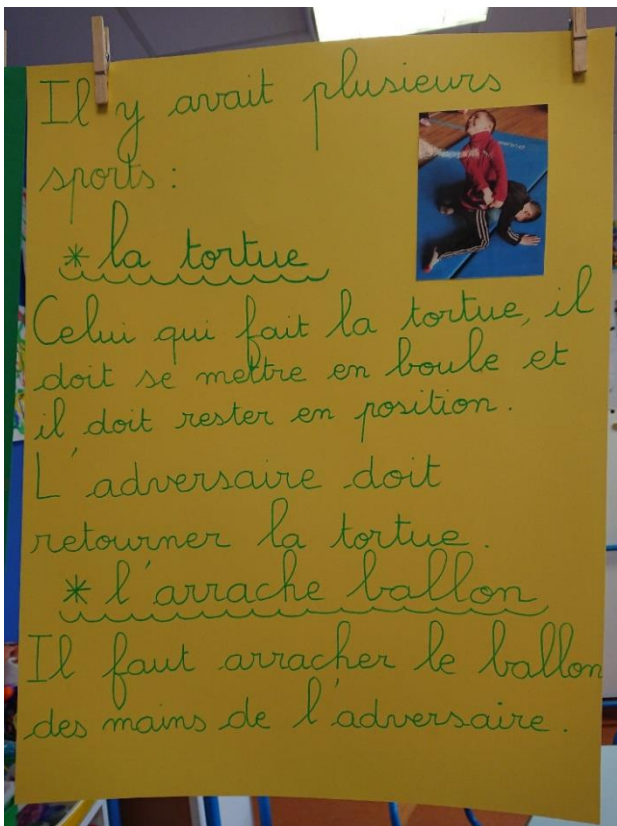 Il y avait plusieurs
sports :
* la tortue
Celui qui fait la tortue, il
doit se mettre en boule et
il doit rester en position.
L'adversaire doit
retourner la tortue.
* l'arrache ballon
Il faut arracher le ballon
des mains de l'adversaire.